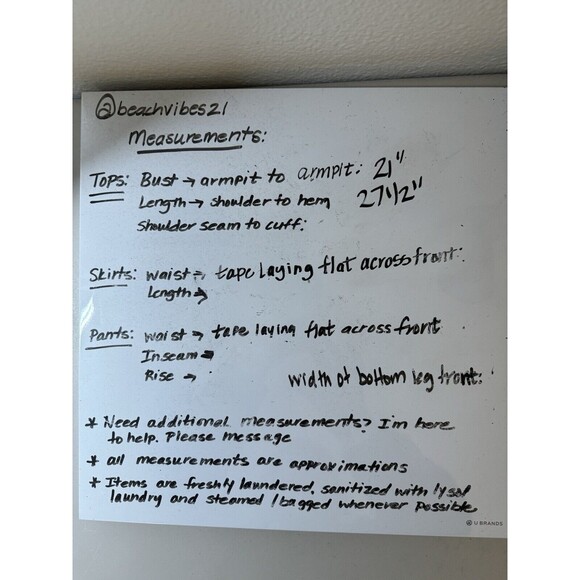 @beachvibes21
Measurements:
Tops: Bust → armpit to armpit: 21"
Length → shoulder to hem 27 1/2"
Shoulder seam to cuff:
Skirts: waist → tape laying flat across front:
Length →
Pants: waist → tape laying flat across front
Inseam →
Rise → width of bottom leg front:
* Need additional measurements? I'm here
to help. Please message
* all measurements are approximations
* Items are freshly laundered, sanitized with lysol
laundry and steamed / bagged whenever possible
U BRANDS